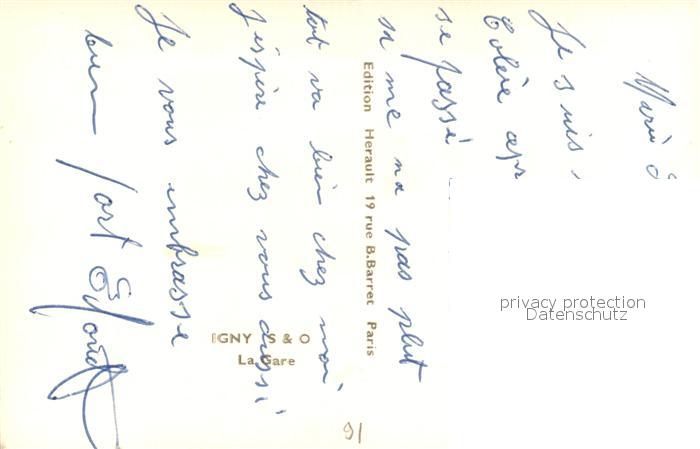 Marie
Je suis
Colère apr
se passé
sa me na pas plut
tout va bien chez moi
J'espère chez vous aussi
Je vous embrasse
bien fort
Edition Herault 19 rue B.Barret Paris
IGNY S & O
La Gare
91
privacy protection
Datenschutz